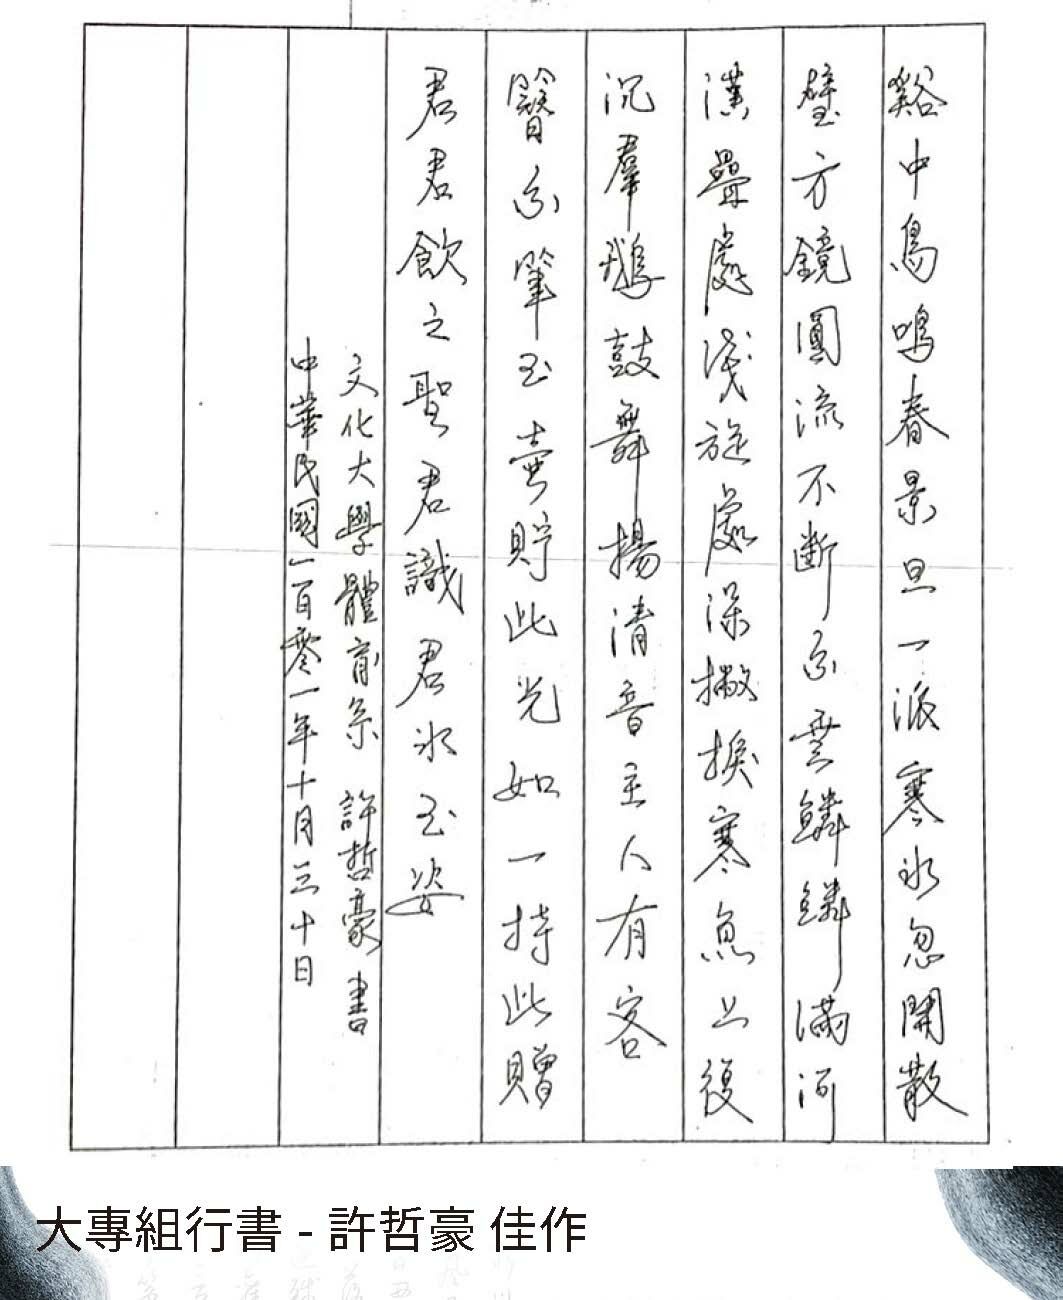 谿中鳥鳴春景旦一派寒冰忽開散
璧方鏡圓流不斷白雲鱗鱗滿河
漢疊處淺旋處深撇捩寒魚上復
沉羣鵝鼓舞揚清音主人有客
簪白筆玉壺貯此光如一持此贈
君君飲之聖君識君冰玉姿
文化大學體育系 許哲豪書
中華民國一百零一年十月三十日
大專組行書 - 許哲豪 佳作